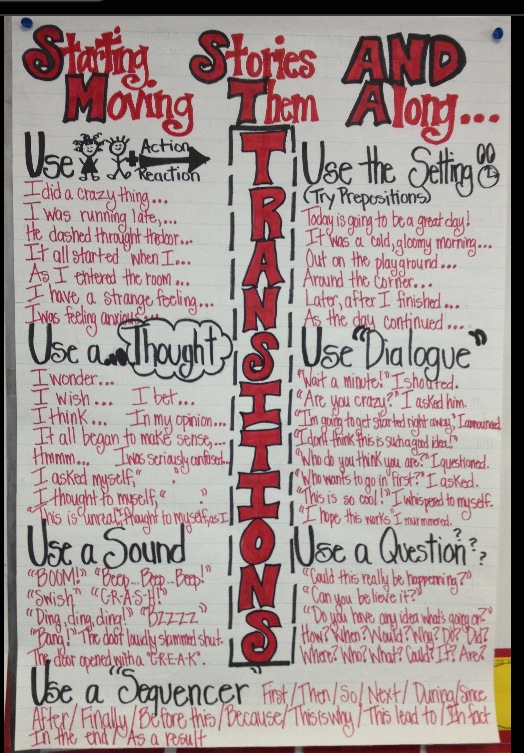 Starting Stories AND
Moving Them Along...
TRANSITIONS
Use + Action
Reaction
I did a crazy thing...
I was running late,...
He dashed throught thedoor...
It all started when I...
As I entered the room...
I have a strange feeling...
I was feeling anxious...
Use a... Thought
I wonder...
I wish... I bet...
I think... In my opinion...
It all began to make sense,...
Hmmm... I was seriously confused...
I asked myself, " ."
I thought to myself, " ."
"This is unreal," I thought to myself, as I
Use a Sound
"BOOM!" "Beep...Beep...Beep!"
"Swish" "C-R-A-S-H!"
"Ding, ding, ding!" "BZZZZ"
"Bang!" The door loudly slammed shut.
The door opened with a "C-R-E-A-K".
Use the Setting
(Try Prepositions)
Today is going to be a great day!
It was a cold, gloomy morning...
Out on the playground...
Around the corner...
Later, after I finished...
As the day continued...
Use "Dialogue"
"Wait a minute!" I shouted.
"Are you crazy?" I asked him.
"I'm going to get started right away," I announced.
"I don't think this is such a good idea!"
"Who do you think you are?" I questioned.
"Who wants to go in first?" I asked.
"This is so cool!" I whispered to myself.
"I hope this works" I murmered.
Use a Question???
"Could this really be happenning?"
"Can you believe it?"
"Do you have any idea what's going on?"
How? When? Would? Why? Do? Did?
Where? Who? What? Could? If? Are?
Use a "Sequencer" First/Then/So/Next/During/since
After/Finally/Before this/Because/This is why/This lead to/In fact
In the end/As a result